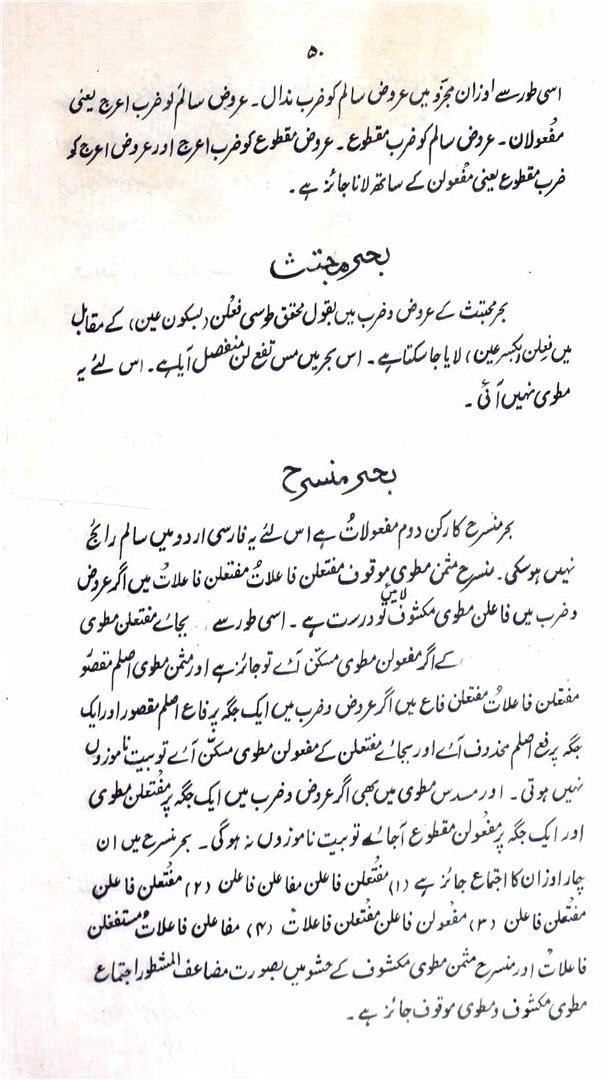 ۵۰
اسی طور سے اوزان مجزّو میں عروض سالم کو ضرب مذال۔ عروض سالم کو ضرب اعرج یعنی
مفعولان۔ عروض سالم کو ضرب مقطوع۔ عروض مقطوع کو ضرب اعرج اور عروض اعرج کو
ضرب مقطوع یعنی مفعولن کے ساتھ لانا جائز ہے۔
بحر مجتث
بحر مجتث کے عروض و ضرب میں بقول محقق طوسی فعْلن (بسکون عین) کے مقابل
میں فعِلن (بکسر عین) لایا جا سکتا ہے۔ اس بحر میں مس تفع لن منفصل آیا ہے۔ اس لئے یہ
مطوی نہیں آئی۔
بحر منسرح
بحر منسرح کا رکن دوم مفعولاتُ ہے اس لئے یہ فارسی اردو میں سالم رائج
نہیں ہو سکی۔ منسرح مثمن مطوی موقوف مفتعلن فاعلاتُ مفتعلن فاعلات میں اگر عروض
و ضرب میں فاعلن مطوی مکشوف لائیں تو درست ہے۔ اسی طور سے بجائے مفتعلن مطوی
کے اگر مفعولن مطوی مسکّن آئے تو جائز ہے اور مثمن مطوی اصلم مقصور
مفتعلن فاعلاتُ مفتعلن فاع میں اگر عروض و ضرب میں ایک جگہ پر فاع اصلم مقصور اور ایک
جگہ پر فع اصلم محذوف آئے اور بجائے مفتعلن کے مفعولن مطوی مسکّن آئے تو بیت ناموزوں
نہیں ہوتی۔ اور مسدس مطوی میں بھی اگر عروض و ضرب میں ایک جگہ پر مفتعلن مطوی
اور ایک جگہ پر مفعولن مقطوع آجائے تو بیت ناموزوں نہ ہوگی۔ بحر منسرح میں ان
چار اوزان کا اجتماع جائز ہے (۱) مفتعلن فاعلن مفاعلن فاعلن (۲) مفتعلن فاعلن
مفتعلن فاعلن (۳) مفعولن فاعلن مفتعلن فاعلات (۴) مفاعلن فاعلات مستفعلن
فاعلات اور منسرح مثمن مطوی مکشوف کے حشو میں بصورت مضاعف المشطور اجتماع
مطوی مکشوف و مطوی موقوف جائز ہے۔